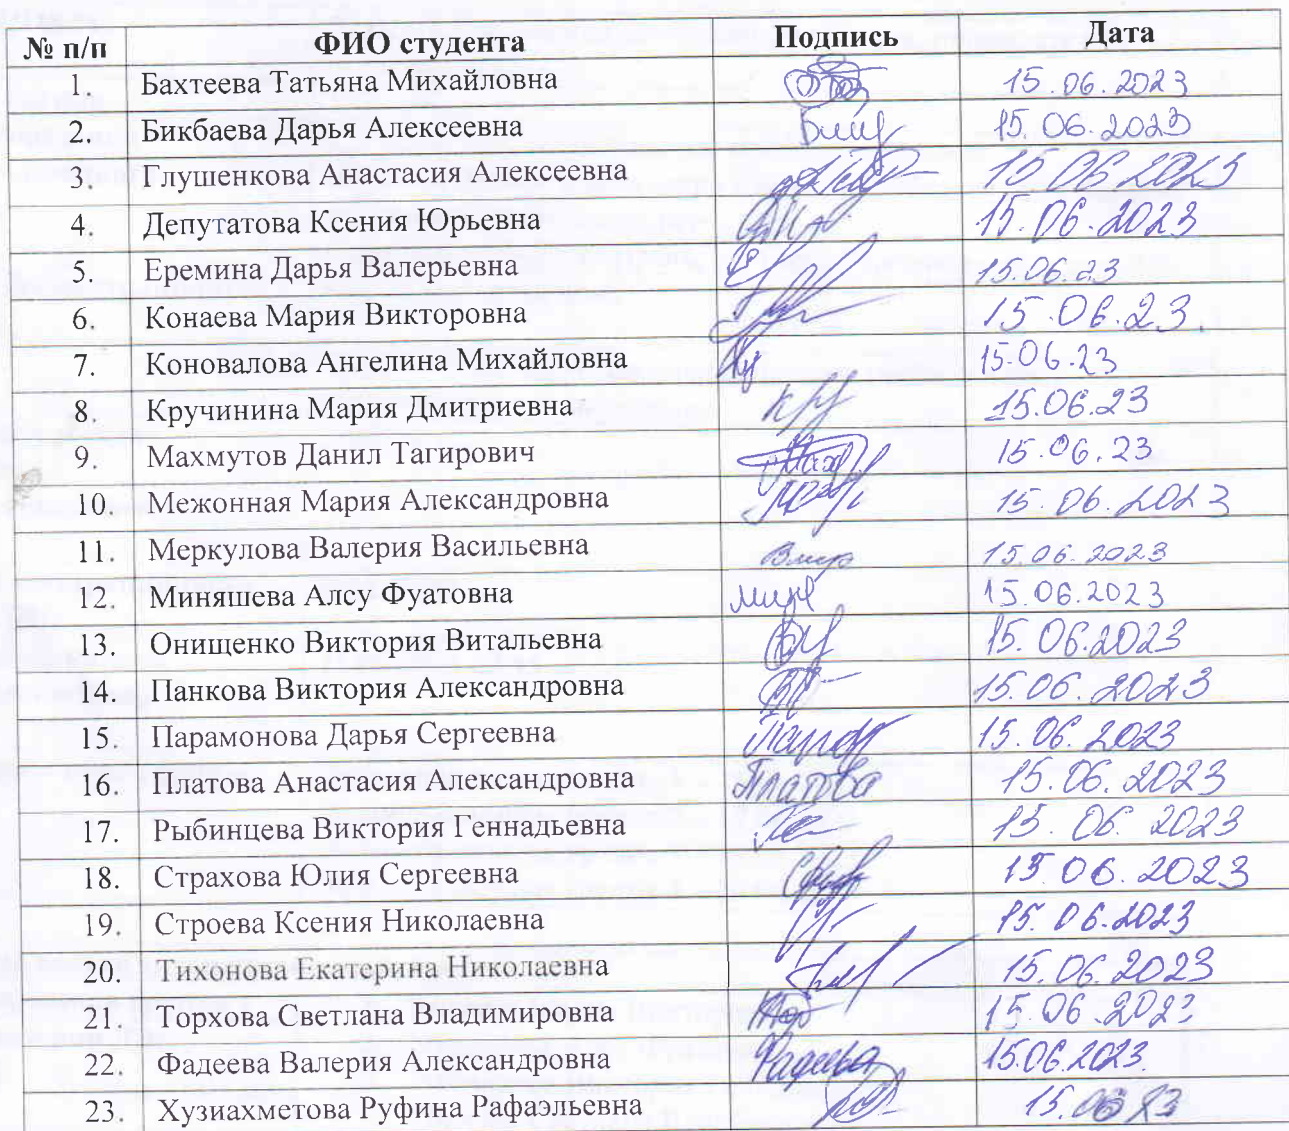 № п/п ФИО студента Подпись Дата
1. Бахтеева Татьяна Михайловна 15.06.2023
2. Бикбаева Дарья Алексеевна 15.06.2023
3. Глушенкова Анастасия Алексеевна 15 06 2023
4. Депутатова Ксения Юрьевна 15.06.2023
5. Еремина Дарья Валерьевна 15.06.23
6. Конаева Мария Викторовна 15.06.23.
7. Коновалова Ангелина Михайловна 15.06.23
8. Кручинина Мария Дмитриевна 15.06.23
9. Махмутов Данил Тагирович 15.06.23
10. Межонная Мария Александровна 15.06.2023
11. Меркулова Валерия Васильевна 15.06.2023
12. Миняшева Алсу Фуатовна 15.06.2023
13. Онищенко Виктория Витальевна 15.06.2023
14. Панкова Виктория Александровна 15.06.2023
15. Парамонова Дарья Сергеевна 15.06.2023
16. Платова Анастасия Александровна Платова 15.06.2023
17. Рыбинцева Виктория Геннадьевна 15.06.2023
18. Страхова Юлия Сергеевна 15.06.2023
19. Строева Ксения Николаевна 15.06.2023
20. Тихонова Екатерина Николаевна 15.06.2023
21. Торхова Светлана Владимировна 15.06.2023
22. Фадеева Валерия Александровна Фадеева 15.06.2023.
23. Хузиахметова Руфина Рафаэльевна 15.06 23